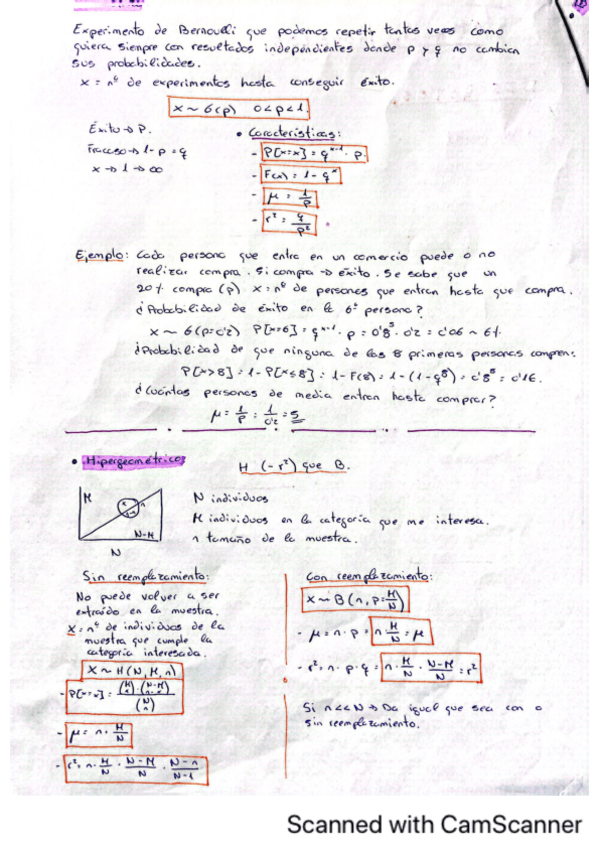 Experimento de Bernouilli que podemos repetir tantas veces como
quiera siempre con resultados independientes donde p y q no cambian
sus probabilidades.
x = nº de experimentos hasta conseguir éxito.
X ~ G(p) 0<p<1.
Éxito → P.
Fracaso → 1-p = q
x → 1 → ∞
• Características:
- P[x=x] = q^(x-1) · p.
- F(x) = 1 - q^x
- μ = 1/p
- σ² = q/p²
Ejemplo: Cada persona que entra en un comercio puede o no
realizar compra. Si compra → éxito. Se sabe que un
20% compra (p) x = nº de personas que entran hasta que compra.
¿Probabilidad de éxito en la 6ª persona?
x ~ G(p=0'2) P[x=6] = q^(x-1) · p = 0'8^5 · 0'2 = 0'06 ~ 6%.
¿Probabilidad de que ninguna de las 8 primeras personas compren?
P[x>8] = 1 - P[x≤8] = 1 - F(8) = 1 - (1 - q^8) = 0'8^8 = 0'16.
¿Cuántas personas de media entran hasta comprar?
μ = 1/p = 1/0'2 = 5
• Hipergeométricas
H (-σ²) que B.
M
N-M
N
N individuos
M individuos en la categoría que me interesa.
n tamaño de la muestra.
Sin reemplazamiento:
No puede volver a ser
extraído en la muestra.
X = nº de individuos de la
muestra que cumple la
categoría interesada.
X ~ H(N, M, n)
- μ = n · M/N
- σ² = n · M/N · N-M/N · N-n/N-1
Con reemplazamiento:
X ~ B(n, p = M/N)
- μ = n · p = n M/N = μ
- σ² = n · p · q = n · M/N · N-M/N = σ²
Si n<<N → Da igual que sea con o
sin reemplazamiento.
Scanned with CamScanner